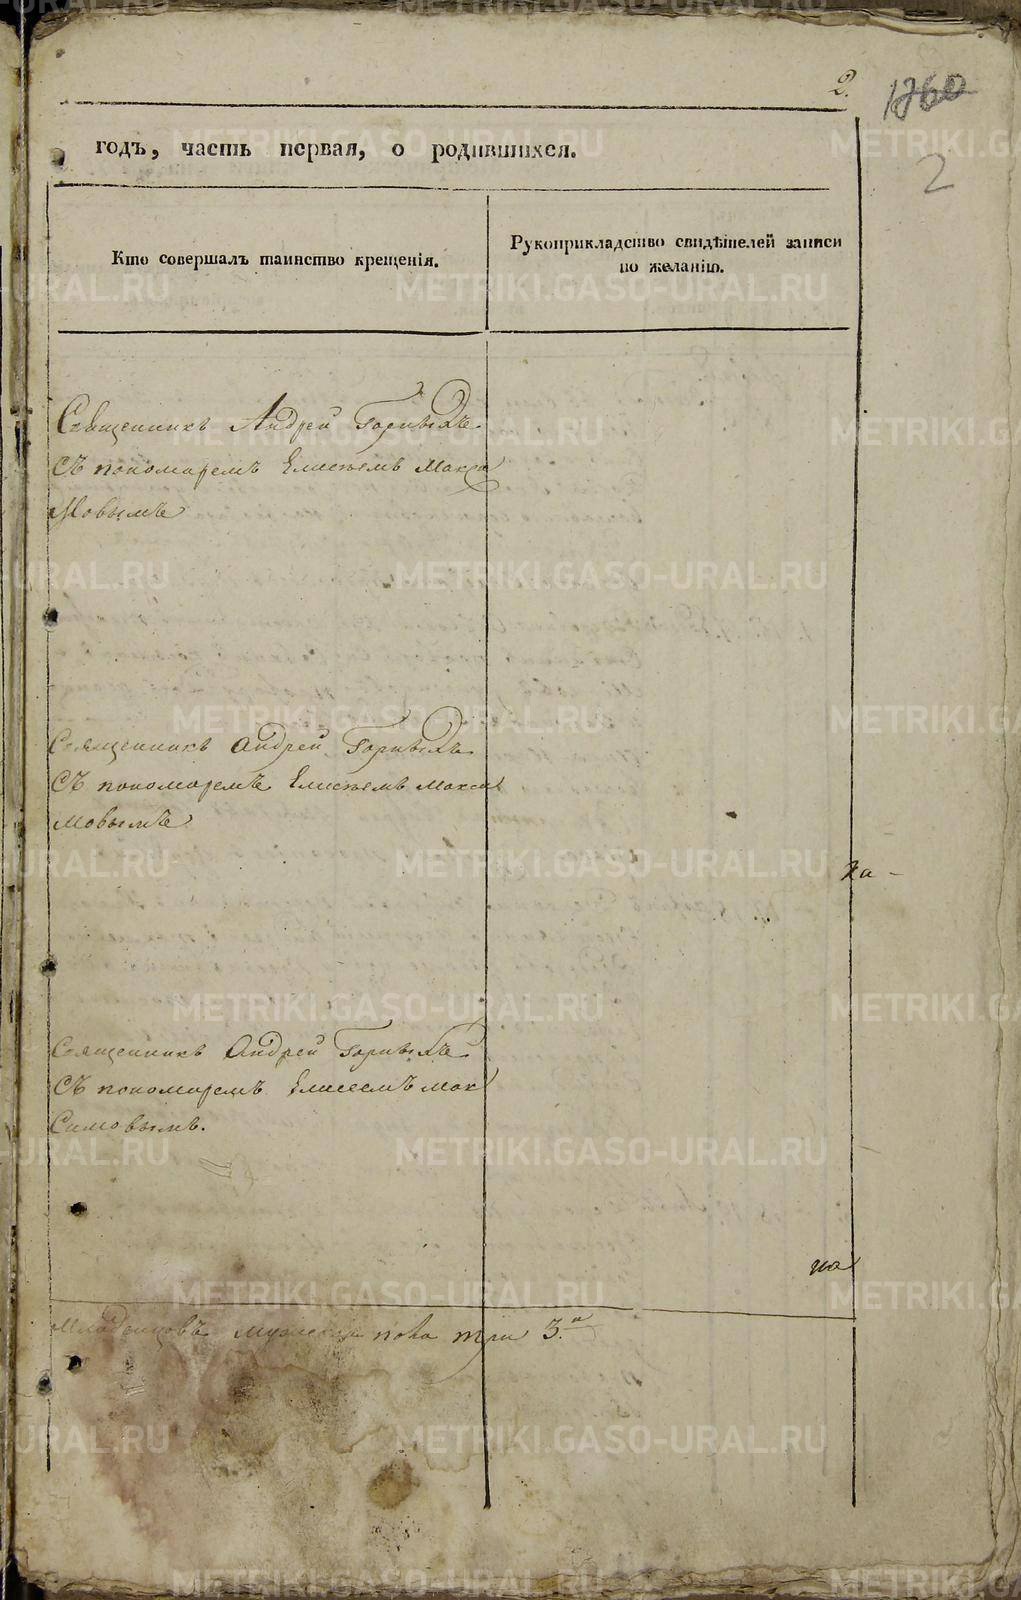 2.
1760
2
годъ, часть первая, о родившихся.
Кто совершалъ таинство крещенія.
Рукоприкладство свидѣтелей записи
по желанію.
Священникъ Андрей Горныхъ
Съ пономаремъ Елисѣемъ Макси
Мовымъ
Священникъ Андрей Горныхъ
Съ пономаремъ Елисѣемъ Макси
мовымъ
Священникъ Андрей Горныхъ
Съ пономаремъ Елисеемъ мак
Симовымъ.
Младенцовъ мужеска пола три 3.
METRIKI.GASO-URAL.RU